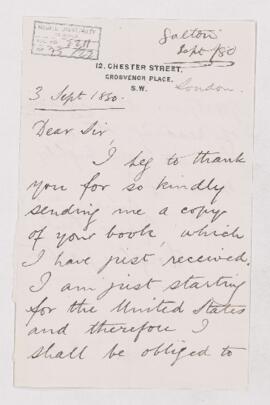 Galton
Sept /80
12, CHESTER STREET,
GROSVENOR PLACE,
S.W.
London.
3 Sept 1880.
Dear Sir,
I beg to thank
you for so kindly
sending me a copy
of your book, which
I have just received.
I am just starting
for the United States
and therefore I
shall be obliged to